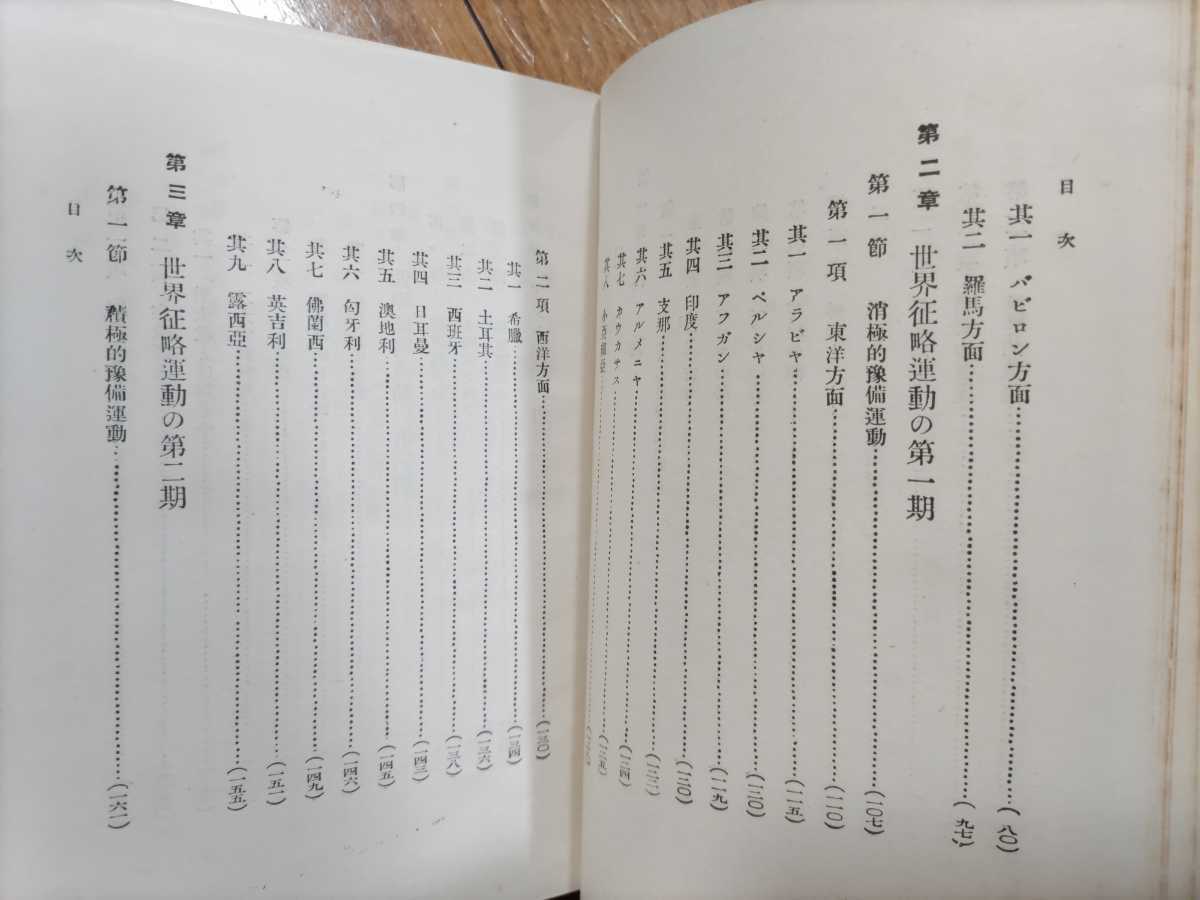 目次
其一 バビロン方面……(八〇)
其二 羅馬方面……(九七)
第二章 世界征略運動の第一期
第一節 消極的豫備運動……(一〇七)
第一項 東洋方面……(一一〇)
其一 アラビヤ……(一一五)
其二 ペルシヤ……(一二〇)
其三 アフガン……(一一九)
其四 印度……(一二〇)
其五 支那……(一二二)
其六 アルメニヤ……
其七 カウカサス……(一二四)
其八 小亞細亞……(一二五)
第二項 西洋方面……(一三〇)
其一 希臘……(一三四)
其二 土耳其……(一三六)
其三 西班牙……(一三八)
其四 日耳曼……(一四三)
其五 澳地利……(一四五)
其六 匈牙利……(一四六)
其七 佛蘭西……(一四九)
其八 英吉利……(一五一)
其九 露西亞……(一五五)
第三章 世界征略運動の第二期
第一節 積極的豫備運動……(一六一)
目次